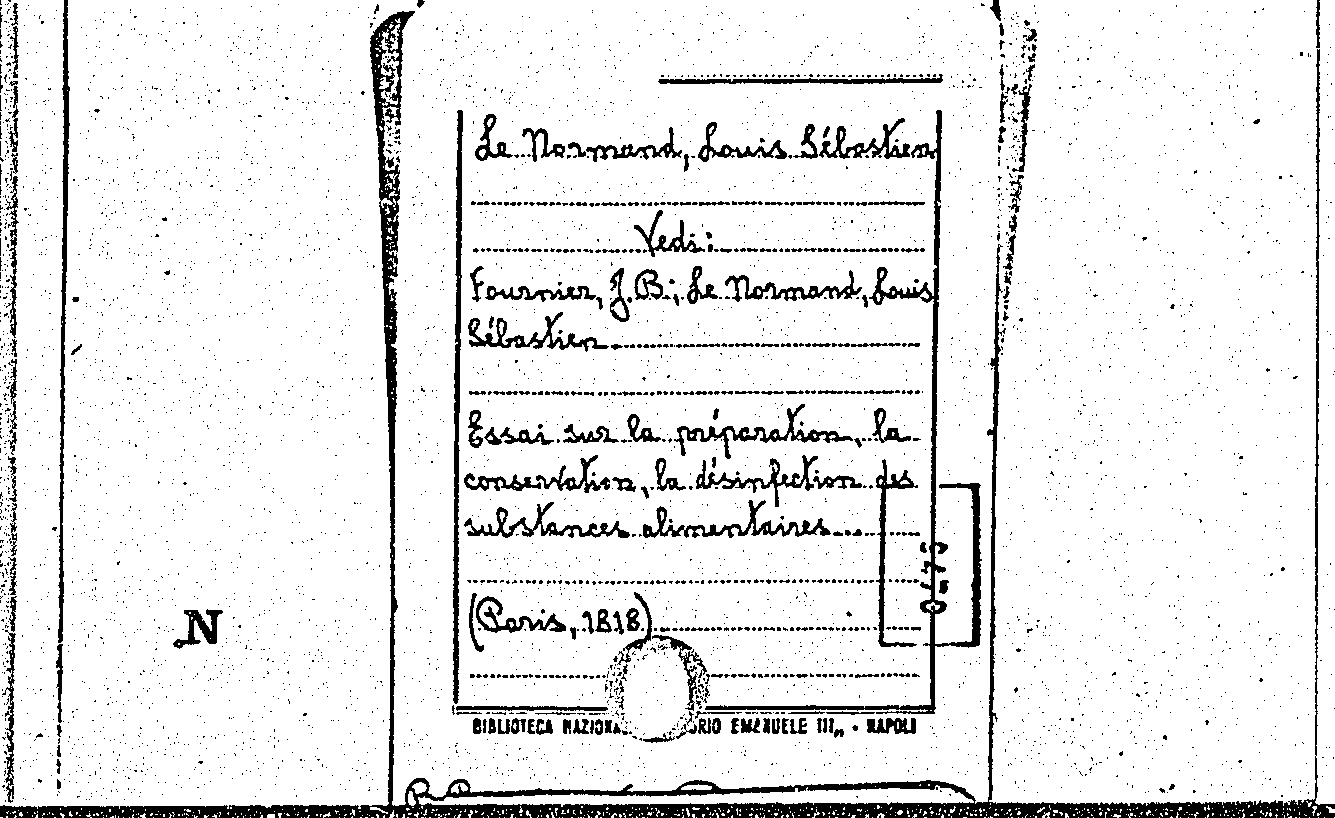 Le Normand, Louis Sébastien
Vedi:
Fournier, J.B.; Le Normand, Louis
Sébastien.
Essai sur la préparation, la
conservation, la désinfection des
substances alimentaires...
(Paris, 1818)
N
BIBLIOTECA EMANUELE III„ - NAPOLI